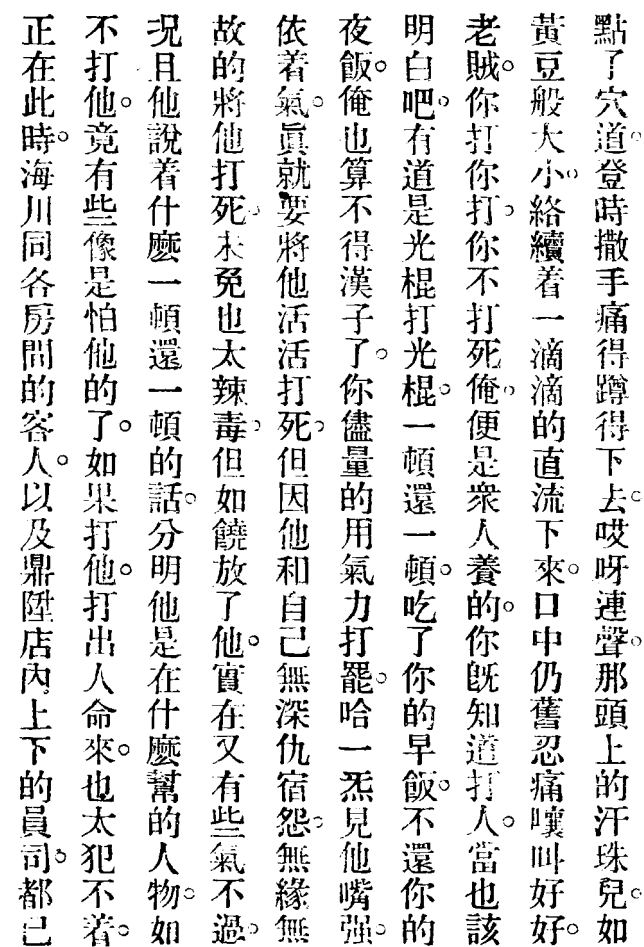 點了穴道。登時撒手痛得蹲得下去。哎呀連聲。那頭上的汗珠兒。如
黃豆般大小。絡續着一滴滴的直流下來。口中仍舊忍痛嚷叫好好。
老賊。你打你打。你不打死俺。便是衆人養的。你旣知道打人。當也該
明白吧。有道是光棍打光棍。一頓還一頓。吃了你的早飯。不還你的
夜飯。俺也算不得漢子了。你儘量的用氣力打罷。哈一炁見他嘴强。
依着氣。眞就要將他活活打死。但因他和自己無深仇宿怨。無緣無
故的將他打死。未免也太辣毒。但如饒放了他。實在又有些氣不過。
況且他說着什麽一頓還一頓的話。分明他是在什麽幫的人物。如
不打他。竟有些像是怕他的了。如果打他。打出人命來。也太犯不着。
正在此時。海川同各房間的客人。以及鼎陞店內上下的員司。都已